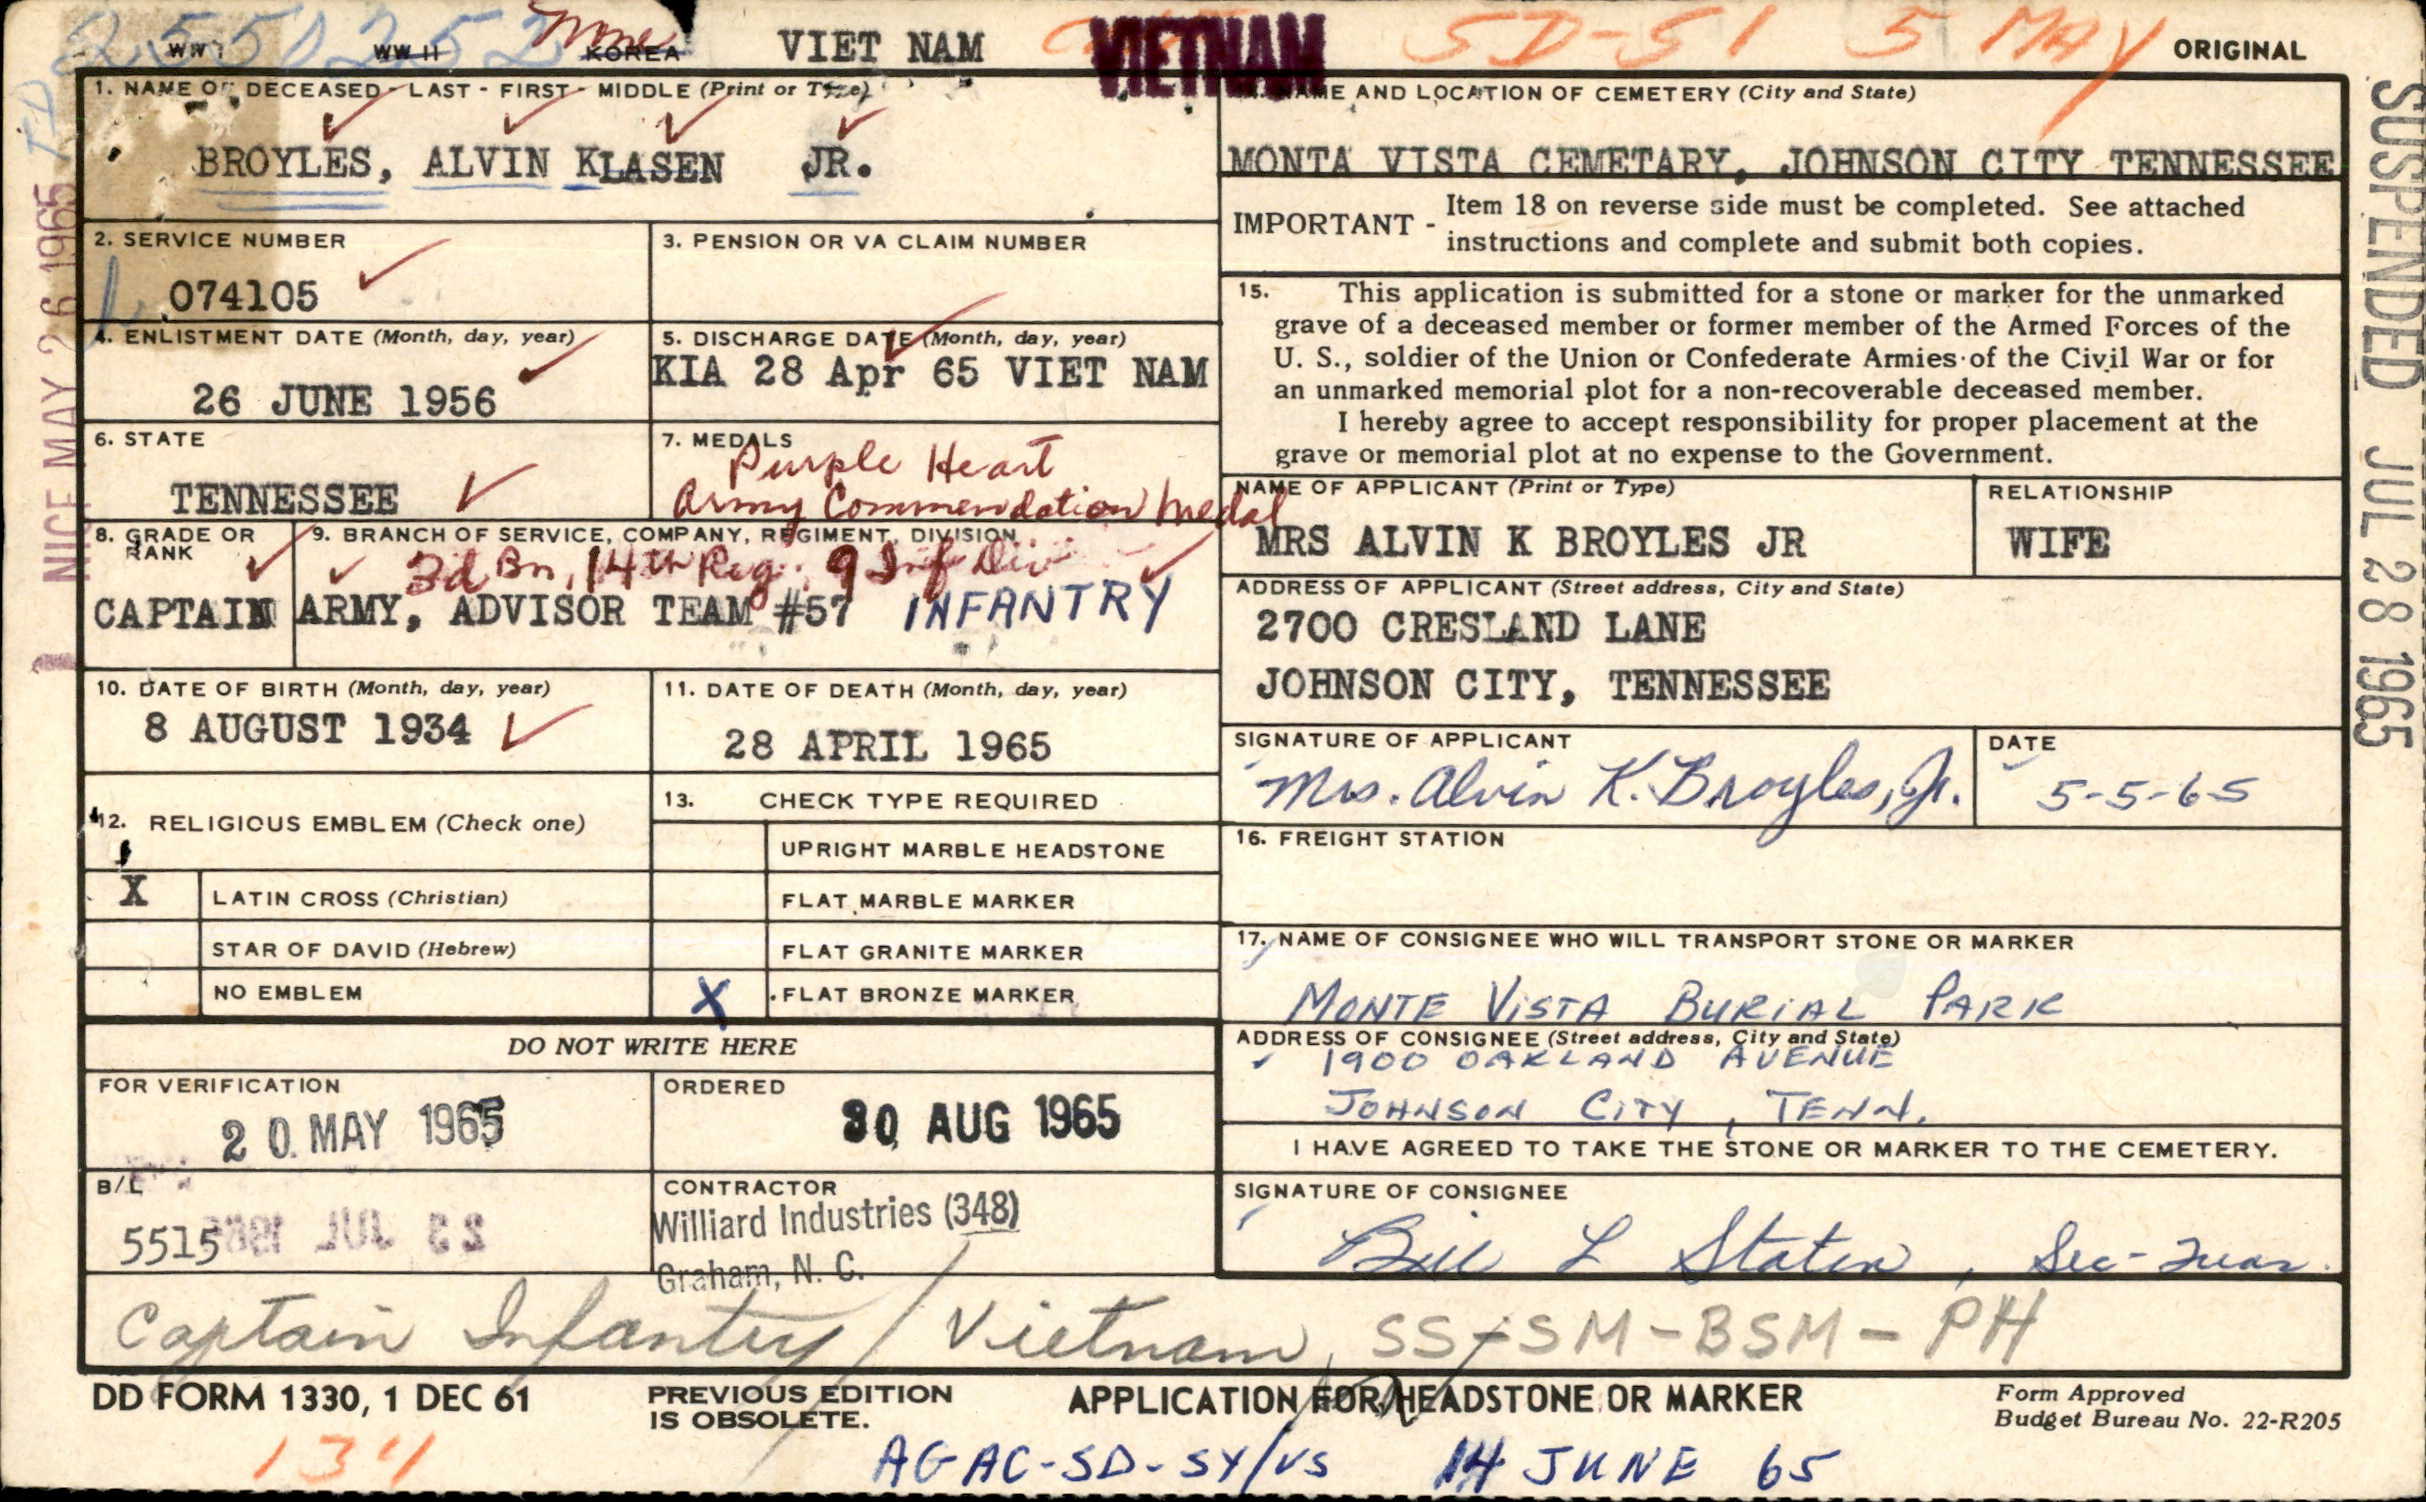 2550252
WW I WW II KOREA None VIET NAM VIETNAM SD-51 5 MAY ORIGINAL
1. NAME OF DECEASED - LAST - FIRST - MIDDLE (Print or Type)
BROYLES, ALVIN KLASEN JR.
2. SERVICE NUMBER
074105
3. PENSION OR VA CLAIM NUMBER
4. ENLISTMENT DATE (Month, day, year)
26 JUNE 1956
5. DISCHARGE DATE (Month, day, year)
KIA 28 Apr 65 VIET NAM
6. STATE
TENNESSEE
7. MEDALS
Purple Heart
Army Commendation Medal
8. GRADE OR
RANK
CAPTAIN
9. BRANCH OF SERVICE, COMPANY, REGIMENT, DIVISION
3d Bn, 14th Reg. 9 Inf Div
ARMY, ADVISOR TEAM #57 INFANTRY
10. DATE OF BIRTH (Month, day, year)
8 AUGUST 1934
11. DATE OF DEATH (Month, day, year)
28 APRIL 1965
12. RELIGIOUS EMBLEM (Check one)
X LATIN CROSS (Christian)
STAR OF DAVID (Hebrew)
NO EMBLEM
13. CHECK TYPE REQUIRED
UPRIGHT MARBLE HEADSTONE
FLAT MARBLE MARKER
FLAT GRANITE MARKER
X FLAT BRONZE MARKER
DO NOT WRITE HERE
FOR VERIFICATION
20 MAY 1965
ORDERED
30 AUG 1965
B/L
5515
23 JUL 1965
CONTRACTOR
Williard Industries (348)
Graham, N. C.
NAME AND LOCATION OF CEMETERY (City and State)
MONTA VISTA CEMETARY, JOHNSON CITY TENNESSEE
IMPORTANT - Item 18 on reverse side must be completed. See attached
instructions and complete and submit both copies.
15. This application is submitted for a stone or marker for the unmarked
grave of a deceased member or former member of the Armed Forces of the
U. S., soldier of the Union or Confederate Armies of the Civil War or for
an unmarked memorial plot for a non-recoverable deceased member.
I hereby agree to accept responsibility for proper placement at the
grave or memorial plot at no expense to the Government.
NAME OF APPLICANT (Print or Type)
MRS ALVIN K BROYLES JR
RELATIONSHIP
WIFE
ADDRESS OF APPLICANT (Street address, City and State)
2700 CRESLAND LANE
JOHNSON CITY, TENNESSEE
SIGNATURE OF APPLICANT
Mrs. Alvin K. Broyles, Jr.
DATE
5-5-65
16. FREIGHT STATION
17. NAME OF CONSIGNEE WHO WILL TRANSPORT STONE OR MARKER
MONTE VISTA BURIAL PARK
ADDRESS OF CONSIGNEE (Street address, City and State)
1900 OAKLAND AVENUE
JOHNSON CITY, TENN.
I HAVE AGREED TO TAKE THE STONE OR MARKER TO THE CEMETERY.
SIGNATURE OF CONSIGNEE
Bill L Staten, Sec-Treas.
Captain Infantry / Vietnam, SS-SM-BSM-PH
DD FORM 1330, 1 DEC 61
PREVIOUS EDITION
IS OBSOLETE.
APPLICATION FOR HEADSTONE OR MARKER
Form Approved
Budget Bureau No. 22-R205
134
AGAC-SD-SY/VS 14 JUNE 65
SUSPENDED JUL 28 1965
MAY 26 1965